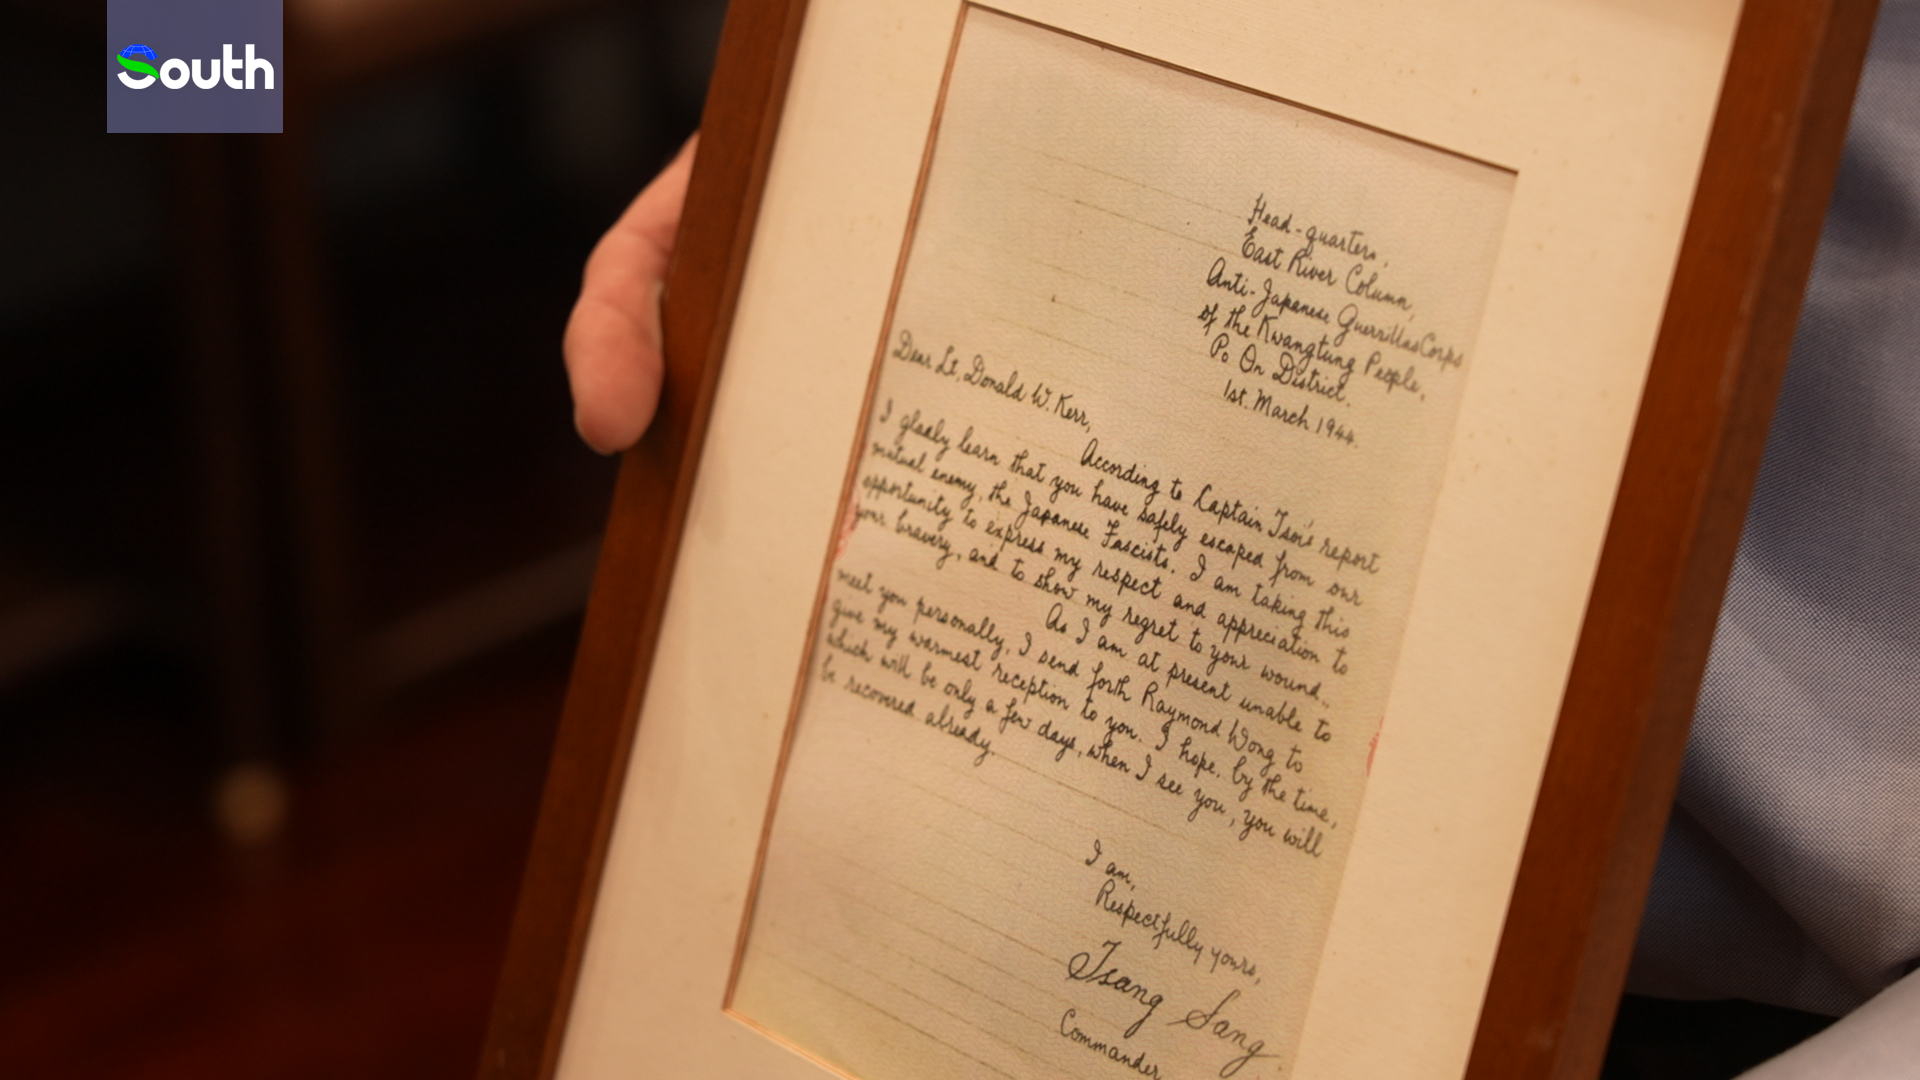 South
Head-quarters,
East River Column,
Anti-Japanese Guerrillas Corps
of the Kwangtung People,
Po On District.
1st. March 1944.
Dear Lt. Donald W. Kerr,
According to Captain Tsoi's report
I gladly learn that you have safely escaped from our
mutual enemy, the Japanese Fascists. I am taking this
opportunity to express my respect and appreciation to
your bravery, and to show my regret to your wound.
As I am at present unable to
meet you personally, I send forth Raymond Wong to
give my warmest reception to you. I hope, by the time,
which will be only a few days, when I see you, you will
be recovered already.
I am,
Respectfully yours,
Tsang Sang
Commander